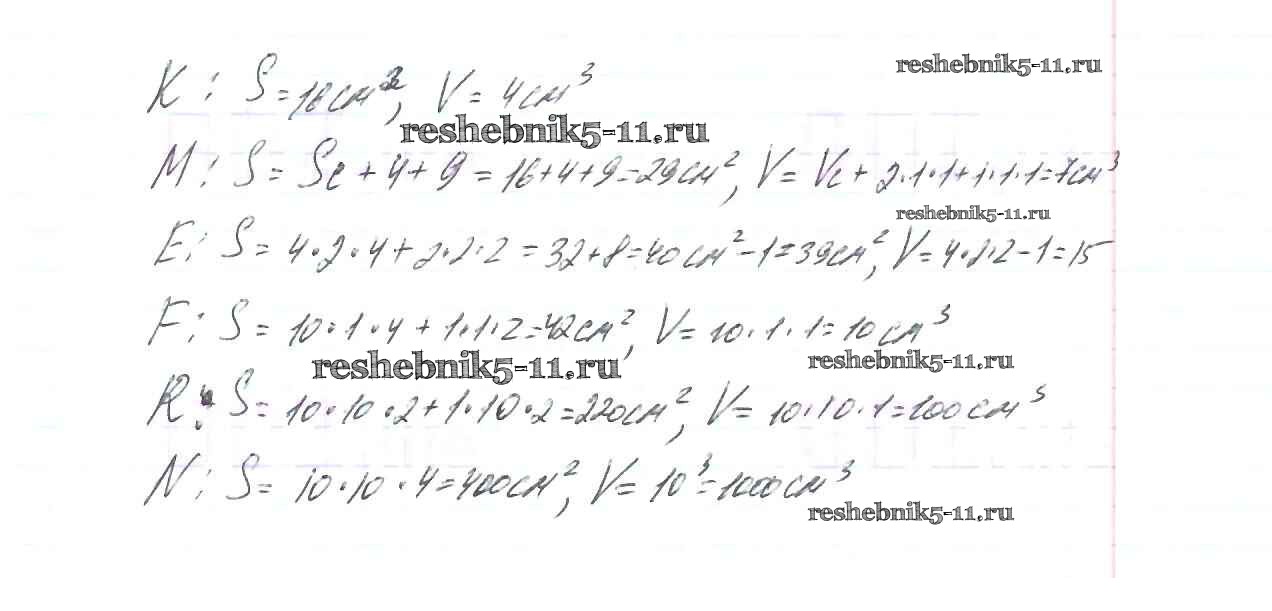 reshebnik5-11.ru
K: S = 16см², V = 4см³
reshebnik5-11.ru
M: S = Sк + 4 + 9 = 16+4+9=29см², V = Vк + 2·1·1+1·1·1=7см³
reshebnik5-11.ru
E: S = 4·2·4+2·2·2 = 32+8=40см²-1=39см², V=4·2·2-1=15
F: S = 10·1·4+1·1·2=42см², V=10·1·1=10см³
reshebnik5-11.ru
reshebnik5-11.ru
R: S = 10·10·2+1·10·2=220см², V= 10·10·1=100см³
N: S = 10·10·4=400см², V= 10³=1000см³
reshebnik5-11.ru